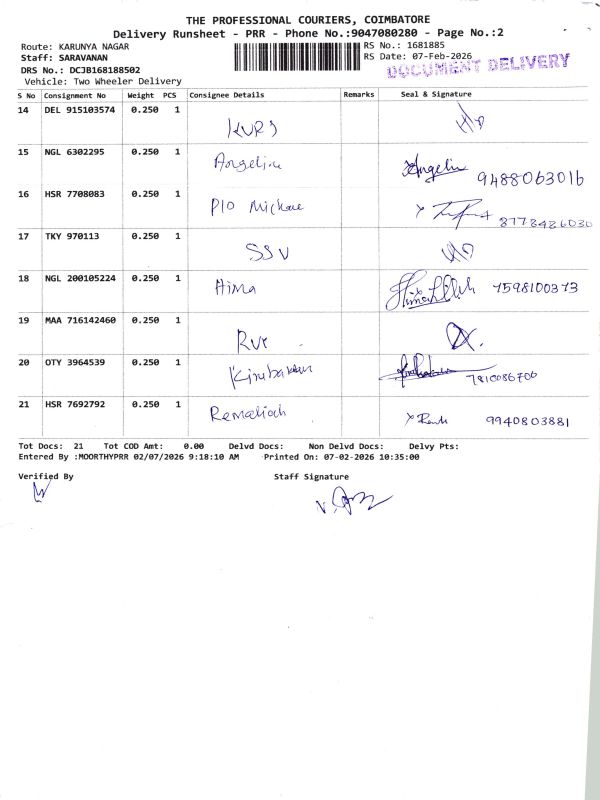 THE PROFESSIONAL COURIERS, COIMBATORE
Delivery Runsheet - PRR - Phone No.:9047080280 - Page No.:2
Route: KARUNYA NAGAR
RS No.: 1681885
Staff: SARAVANAN
RS Date: 07-Feb-2026
DOCUMENT DELIVERY
DRS No.: DCJB168188502
Vehicle: Two Wheeler Delivery
S No Consignment No Weight PCS Consignee Details Remarks Seal & Signature
14 DEL 915103574 0.250 1
15 NGL 6302295 0.250 1 Angelin Angelin 9488063016
16 HSR 7708083 0.250 1 P10 Mickae
17 TKY 970113 0.250 1 SSV
18 NGL 200105224 0.250 1 Hima 7598100373
19 MAA 716142460 0.250 1
20 OTY 3964539 0.250 1 Kirubakaran 7810086700
21 HSR 7692792 0.250 1 9940803881
Tot Docs: 21 Tot COD Amt: 0.00 Delvd Docs: Non Delvd Docs: Delvy Pts:
Entered By :MOORTHYPRR 02/07/2026 9:18:10 AM Printed On: 07-02-2026 10:35:00
Verified By Staff Signature